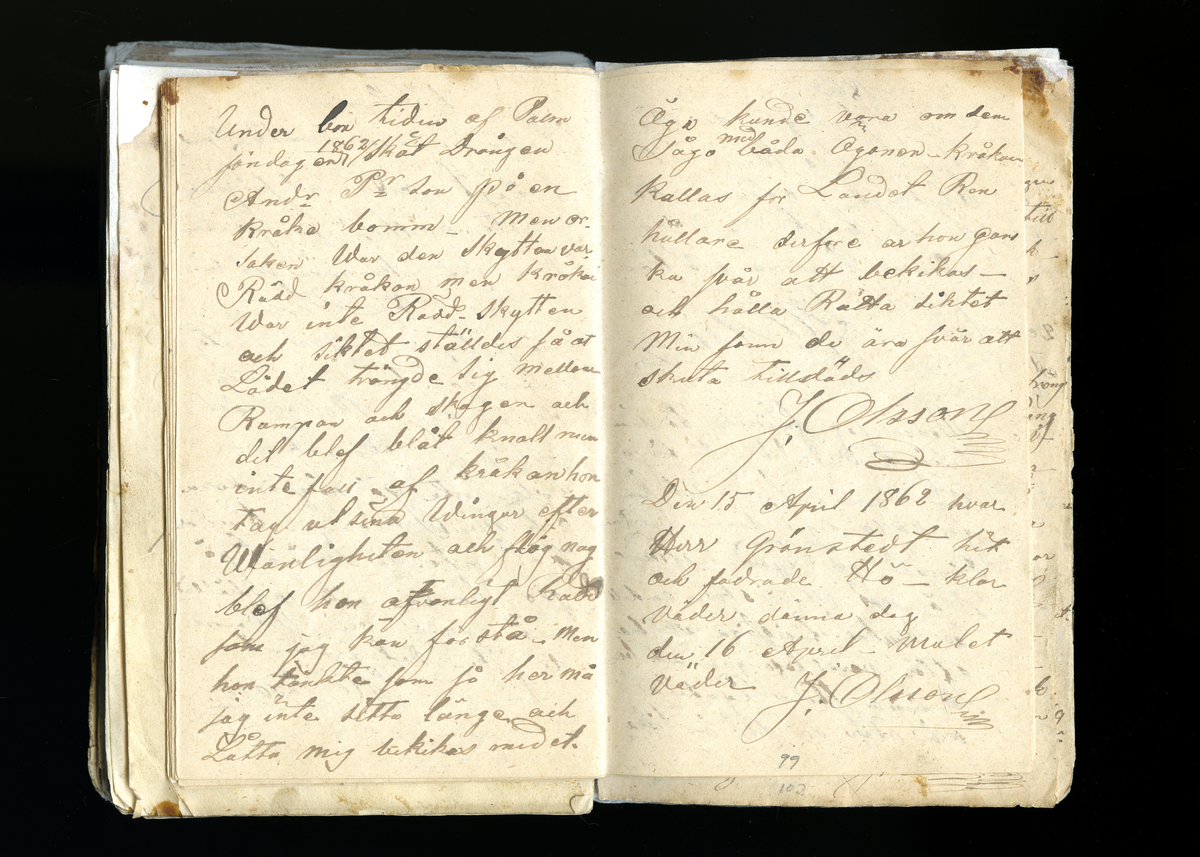 Under bön tiden af Palm
söndagen 1862 / Sköt Drängen
Andr Pr son på en
Kråka bomm – Men or-
saken War den skytten var
Rädd kråkan men kråkan
War inte Rädd – skytten
och siktet ställdes så at
Lådet trängde sig mellan
Rampan och skogen och
det blef blåt knall men
inte fall af kråkan hon
tag ut sina Wingar efter
Wanligheten och flög nog
blef hon ovanligt Rädd
som jag kan förstå. Men
hon tänkte som så her må
jag inte sitta länge och
Låtta mig bekikas med et.
Öga kunde vara om dem
Sågo med båda Ögonen – kråkan
Kallas för Landet Ren
hållare derföre ar hon gans
ka svår att bekikas –
och hålla Rätta siktet
Min sann de ära svår att
skuta tilldöds
J. Olsson
Den 15 April 1862 hvar
Herr Grönstedt hit
och fadrade Hö – klar
väder denna dag
den 16 April – Mulet
Väder J. Olsson
99
102